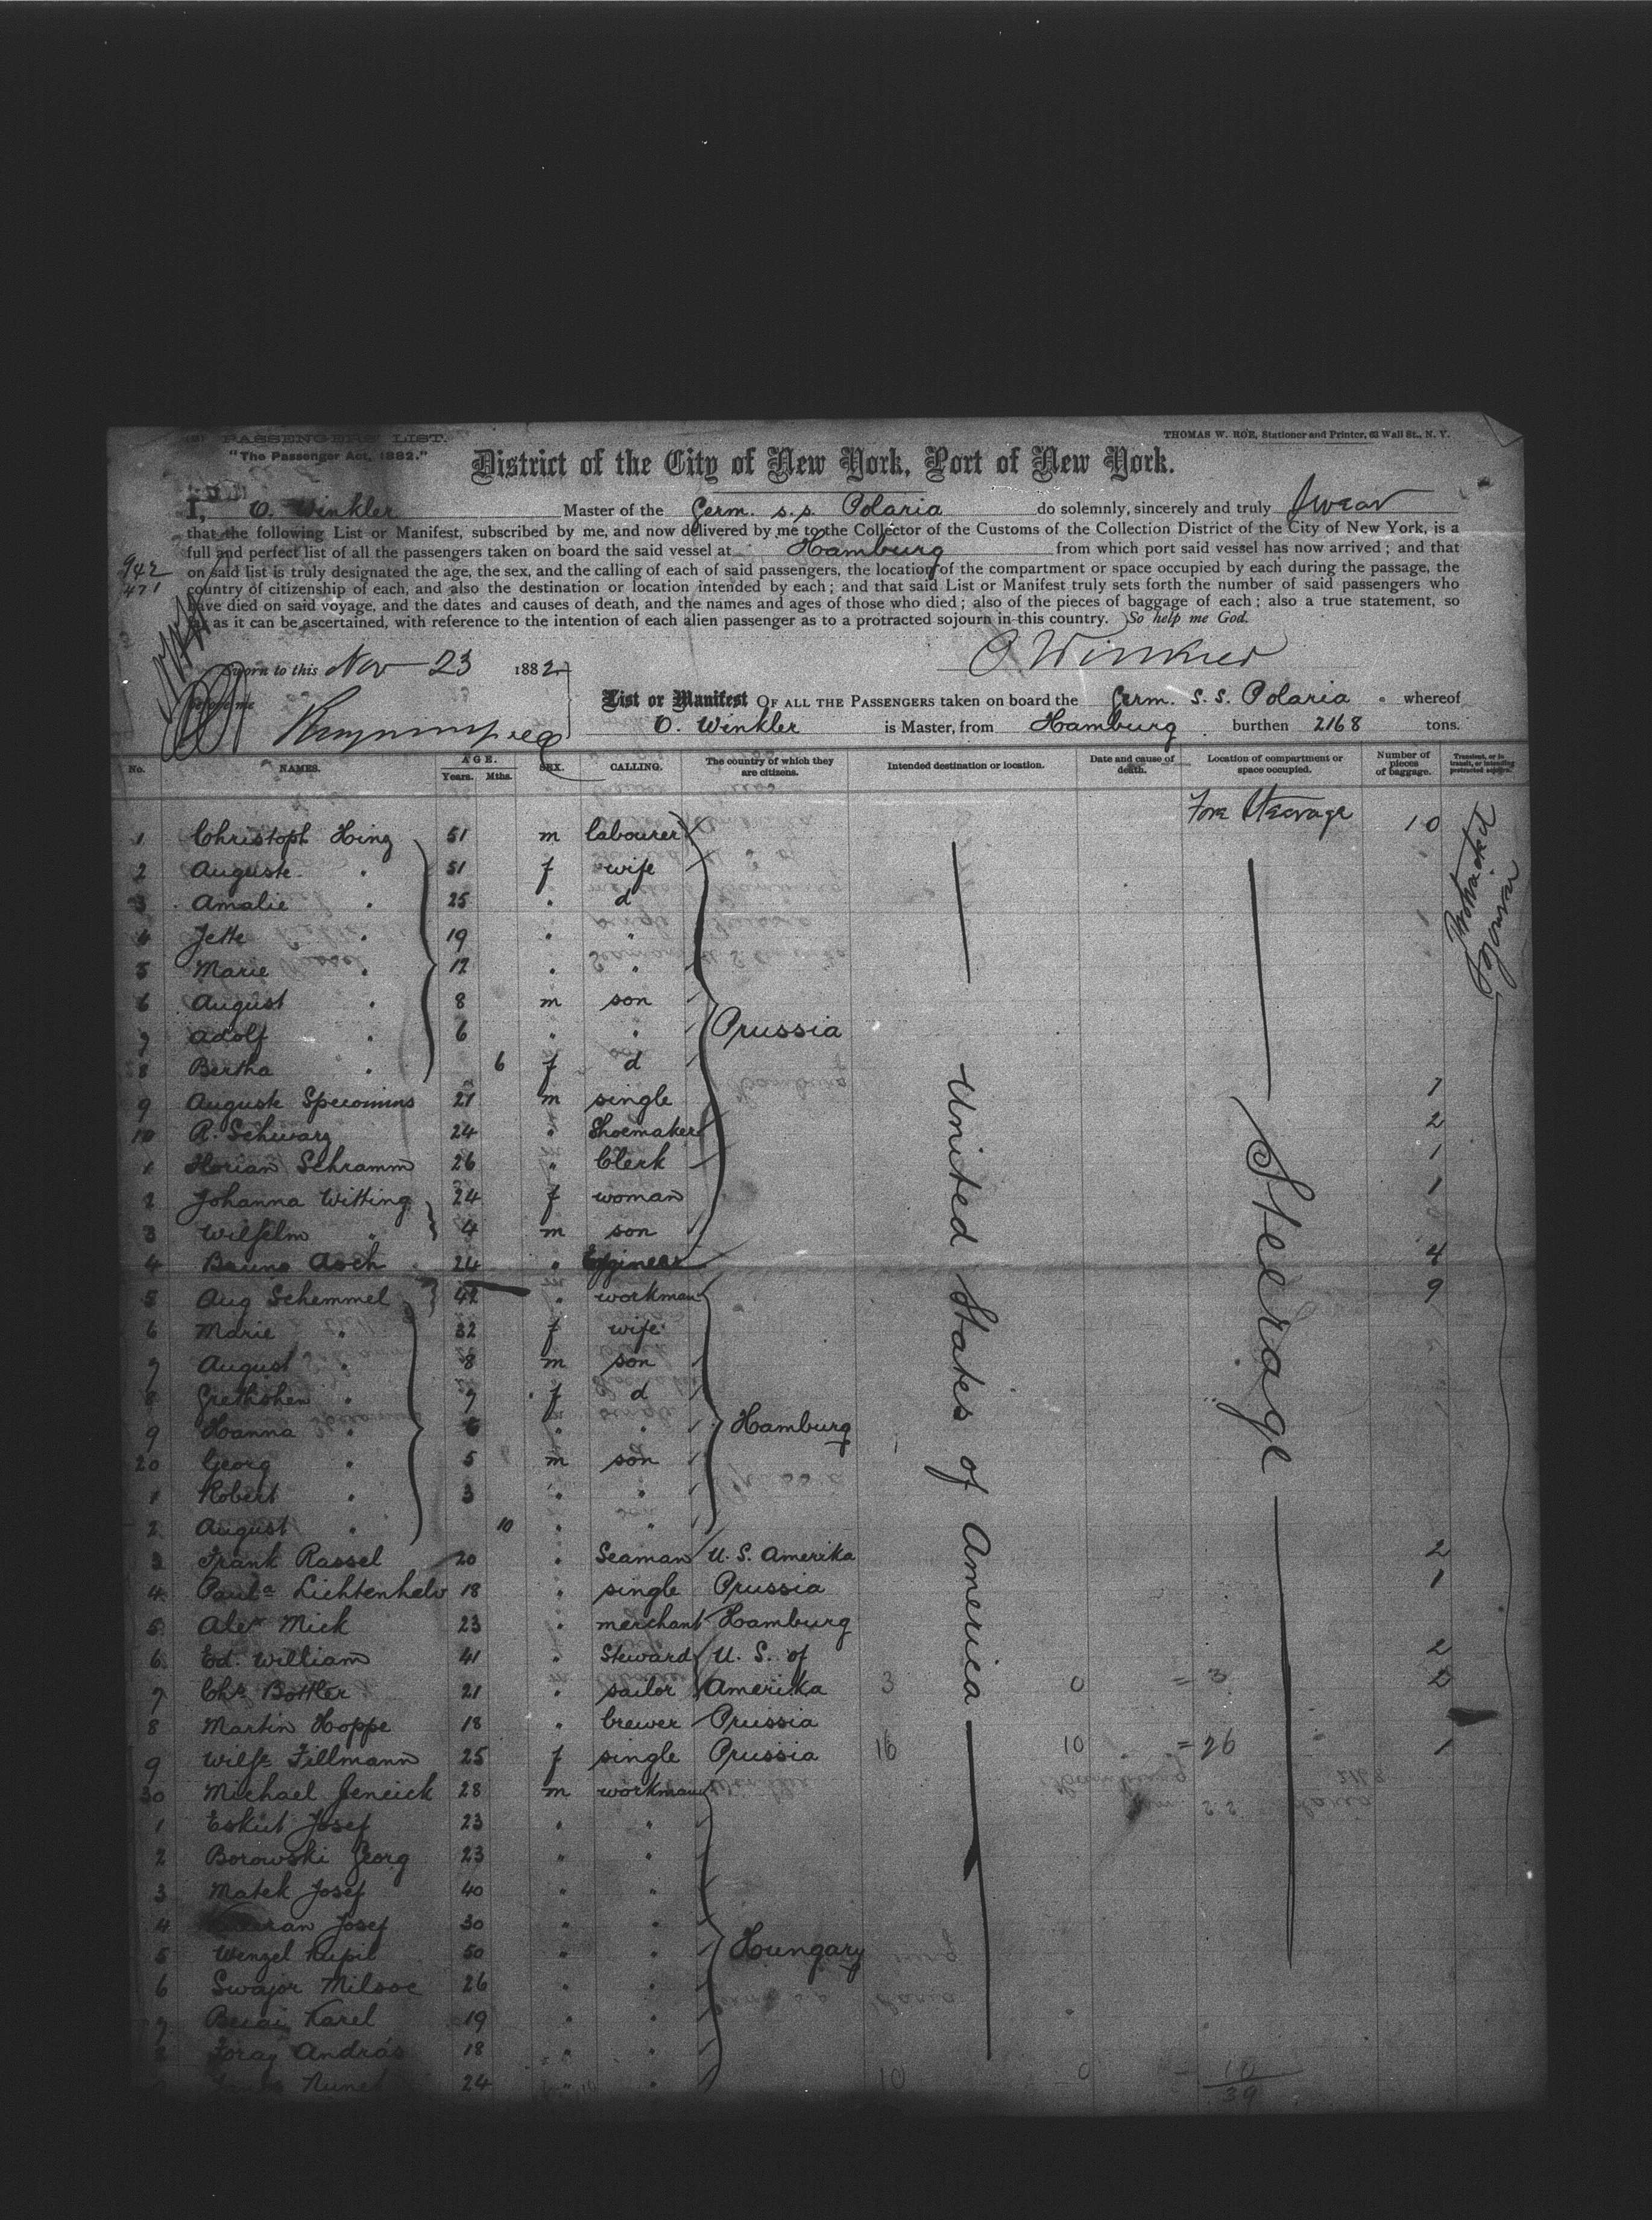 PASSENGERS' LIST.
"The Passenger Act, 1882."
THOMAS W. ROE, Stationer and Printer, 62 Wall St., N. Y.
District of the City of New York, Port of New York.
I, O. Winkler Master of the Germ. s.s. Polaria do solemnly, sincerely and truly swear
that the following List or Manifest, subscribed by me, and now delivered by me to the Collector of the Customs of the Collection District of the City of New York, is a
full and perfect list of all the passengers taken on board the said vessel at Hamburg from which port said vessel has now arrived; and that
on said list is truly designated the age, the sex, and the calling of each of said passengers, the location of the compartment or space occupied by each during the passage, the
country of citizenship of each, and also the destination or location intended by each; and that said List or Manifest truly sets forth the number of said passengers who
have died on said voyage, and the dates and causes of death, and the names and ages of those who died; also of the pieces of baggage of each; also a true statement, so
far as it can be ascertained, with reference to the intention of each alien passenger as to a protracted sojourn in this country. So help me God.
Sworn to this Nov 23 1882
before me
O Winkler
List or Manifest OF ALL THE PASSENGERS taken on board the Germ. s. s. Polaria whereof
O. Winkler is Master, from Hamburg burthen 2168 tons.
No. NAMES. AGE. Years. Mths. SEX. CALLING. The country of which they are citizens. Intended destination or location. Date and cause of death. Location of compartment or space occupied. Number of pieces of baggage. Transient, or in transit, or intending protracted sojourn.
Fore Steerage
Protracted Sojourn
United States of America
Steerage
1 Christoph Hing 51 m labourer 10
2 Auguste " 51 f wife
3 Amalie " 25 " d
4 Jette " 19 " "
5 Marie " 17 " "
6 August " 8 m son
7 Adolf " 6 " " Prussia
8 Bertha " 6 f d
9 August Specomins 21 m single 1
10 R. Schwarz 24 " Shoemaker 2
1 Florian Schramm 26 " Clerk 1
2 Johanna Witting 24 f woman 1
3 Wilhelm " 4 m son
4 Bruno Asch 24 " Engineer 4
5 Aug Schemmel 42 " workman 9
6 Marie " 32 f wife
7 August " 8 m son
8 Grethshen " 7 f d
9 Hanna " 6 " " Hamburg
20 Georg " 5 m son
1 Robert " 3 " "
2 August " 10 " "
3 Frank Rassel 20 " Seaman U. S. Amerika 2
4 Paula Lichtenhelv 18 " single Prussia 1
5 Alex Mick 23 " merchant Hamburg
6 Ed. William 41 " Steward U. S. of 2
7 Chr Bottler 21 " sailor Amerika 3 0 = 3 2
8 Martin Hoppe 18 " brewer Prussia
9 Wilh. Fillmann 25 f single Prussia 16 10 = 26 1
30 Michael Jeneick 28 m workman
1 Eskut Josef 23 " "
2 Borowski Georg 23 " "
3 Matek Josef 40 " "
4 Josef 30 " "
5 Wenzel Kupil 50 " " Hungary
6 Swajor Milsoc 26 " "
7 Karel 19 " "
8 Foray András 18 " "
24 " 10 0 10
39